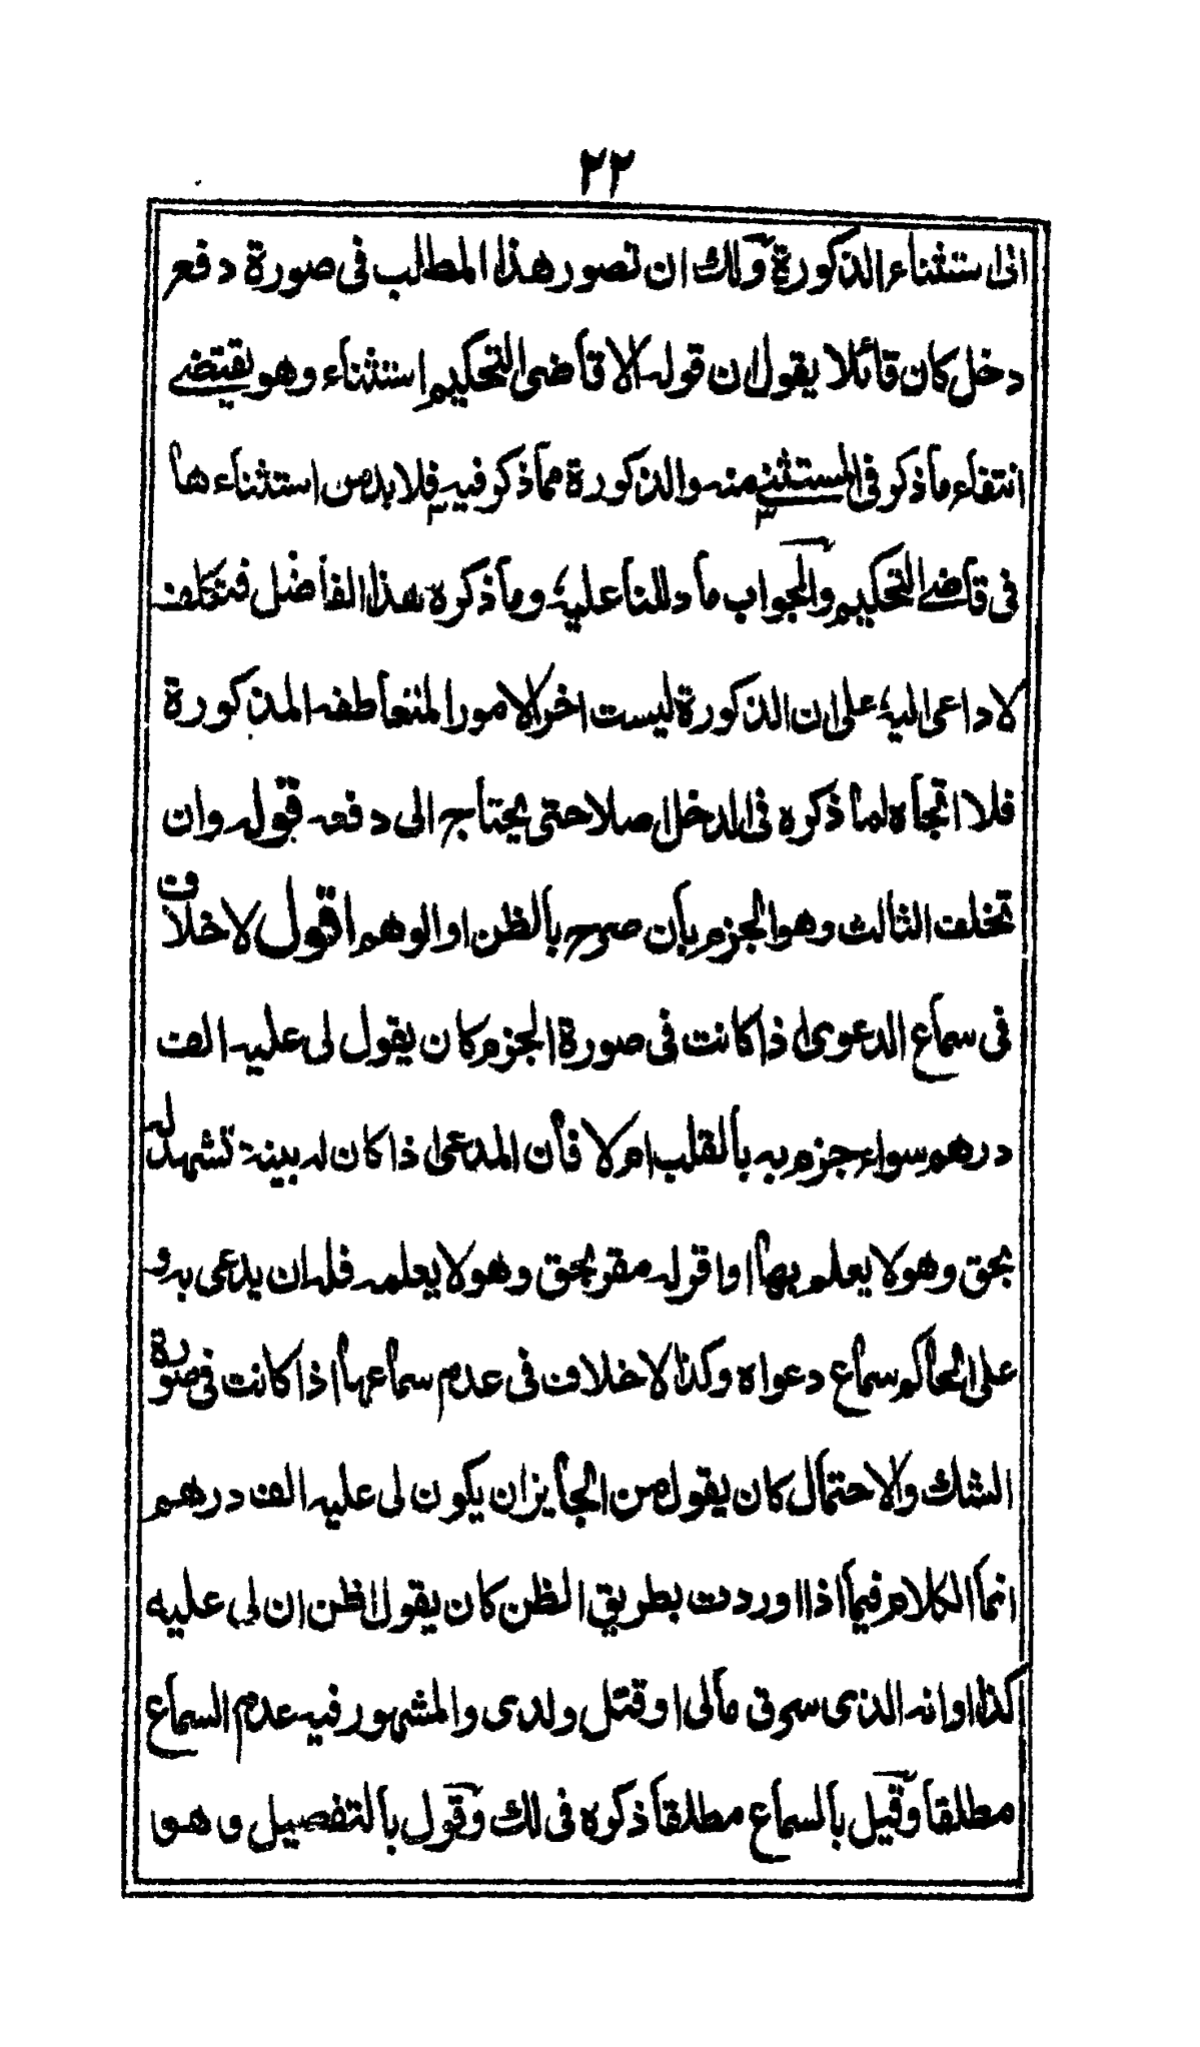 ٢٢
اذا ستثناء الذكورة ولك ان تصور هذا المطلب فى صورة دفع
دخل كان قائلا يقول ان قوله الا قاضى التحكيم استثناء وهو يقتضے
انتفاء ما ذكر فى المستثنے منه والذكورة مما ذكر فيه فلا بد من استثناء ها
فى قاضے التحكيم والجواب ما دللنا عليه وما ذكره هذا الفاضل فتكلف
لا داعى اليه على ان الذكورة ليست اخر الامور المتعاطفه المذكورة
فلا اتجاه لما ذكره فى الدخل اصلا حتى يحتاج الى دفعه قوله وان
تخلف الثالث وهو الجزم بان صرح بالظن او الوهم اقول لا خلاف
فى سماع الدعوى اذا كانت فى صورة الجزم كان يقول لى عليه الف
درهم سواء جزم به بالقلب ام لا فان المدعى اذا كان له بينة تشهد له
بحق وهو لا يعلم بها او اقر له مقر بحق وهو لا يعلمه فله ان يدعى به و
على الحاكم سماع دعواه وكذا لا خلاف فى عدم سماعها اذا كانت فى صورة
الشك والاحتمال كان يقول من الجايز ان يكون لى عليه الف درهم
انما الكلام فيما اذا اوردت بطريق الظن كان يقول اظن ان لى عليه
كذا او انه الذى سرق مالى او قتل ولدى والمشهور فيه عدم السماع
مطلقا وقيل بالسماع مطلقا ذكره فى لك وقول بالتفصيل وهو